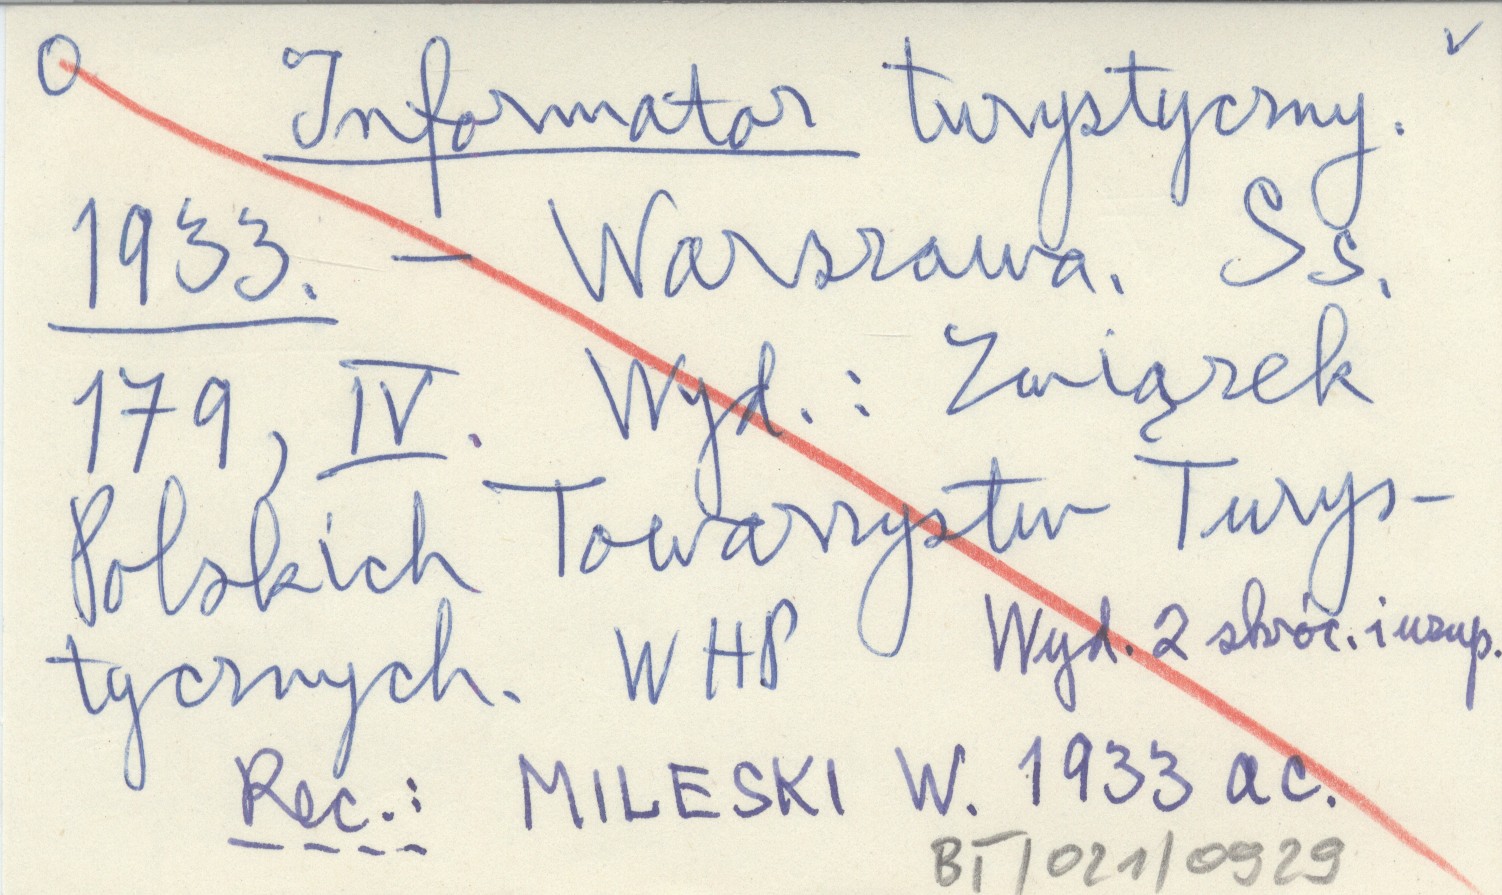 O Informator turystyczny. v
1933. – Warszawa. Ss.
179, IV. Wyd.: Związek
Polskich Towarzystw Turys-
tycznych. WHP Wyd. 2 skróc. i uzup.
Rec.: MILESKI W. 1933 a c.
BT/021/0929